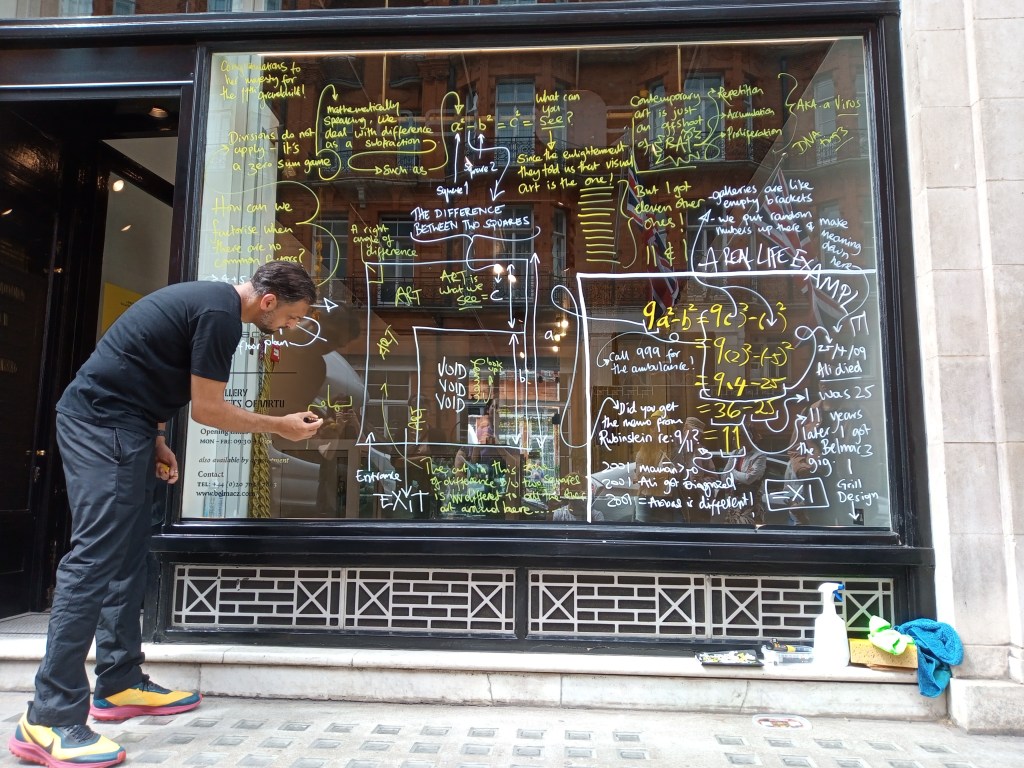 Congratulations to
her majesty for
the 11th grandchild!
Divisions do not
apply - it's
a zero sum game
How can we
factorise when
there are no
common factors?
floor plan
mathematically
speaking, we
deal with difference
as a subtraction
Such as
a² - b² = c = ?
Square 1
Square 2
THE DIFFERENCE
BETWEEN TWO SQUARES
What can
you
see?
Since the enlightenment
they told us that visual
art is the one!
Contemporary
art is just
an offshoot
of
Repetition
Accumulation
Proliferation
AKA a Virus
DNA
But I got
eleven other
ones!
galleries are like
empty brackets
- we put random
numbers up there &
make
meaning
down
here
A right
angle of
difference
ART IS
what we
see = c
ART
ART
ART
VOID
VOID
VOID
a
b
Entrance
EXIT
The art in this
of difference b/w two squares
is indifferent to all the other
art around here
A REAL LIFE EXAMPLE
9a²-b² = 9( )²-( )²
= 9(2)²-(-5)²
= 9.4-25
= 36-25
= 11
Call 999 for
the ambulance!
Did you get
the memo from
Rubinstein re: 9/11?
2001
2001 Ali got diagnosed
2001 = Abroad is different!
25/4/09
Ali died
I was 25
11 years
later I got
the Belmacz
gig!
= XI
Grill
Design
GALLERY
OBJETS OF VIRTU
Opening
MON - FRI: 09:30
also available by
Contact
www.belmacz.c